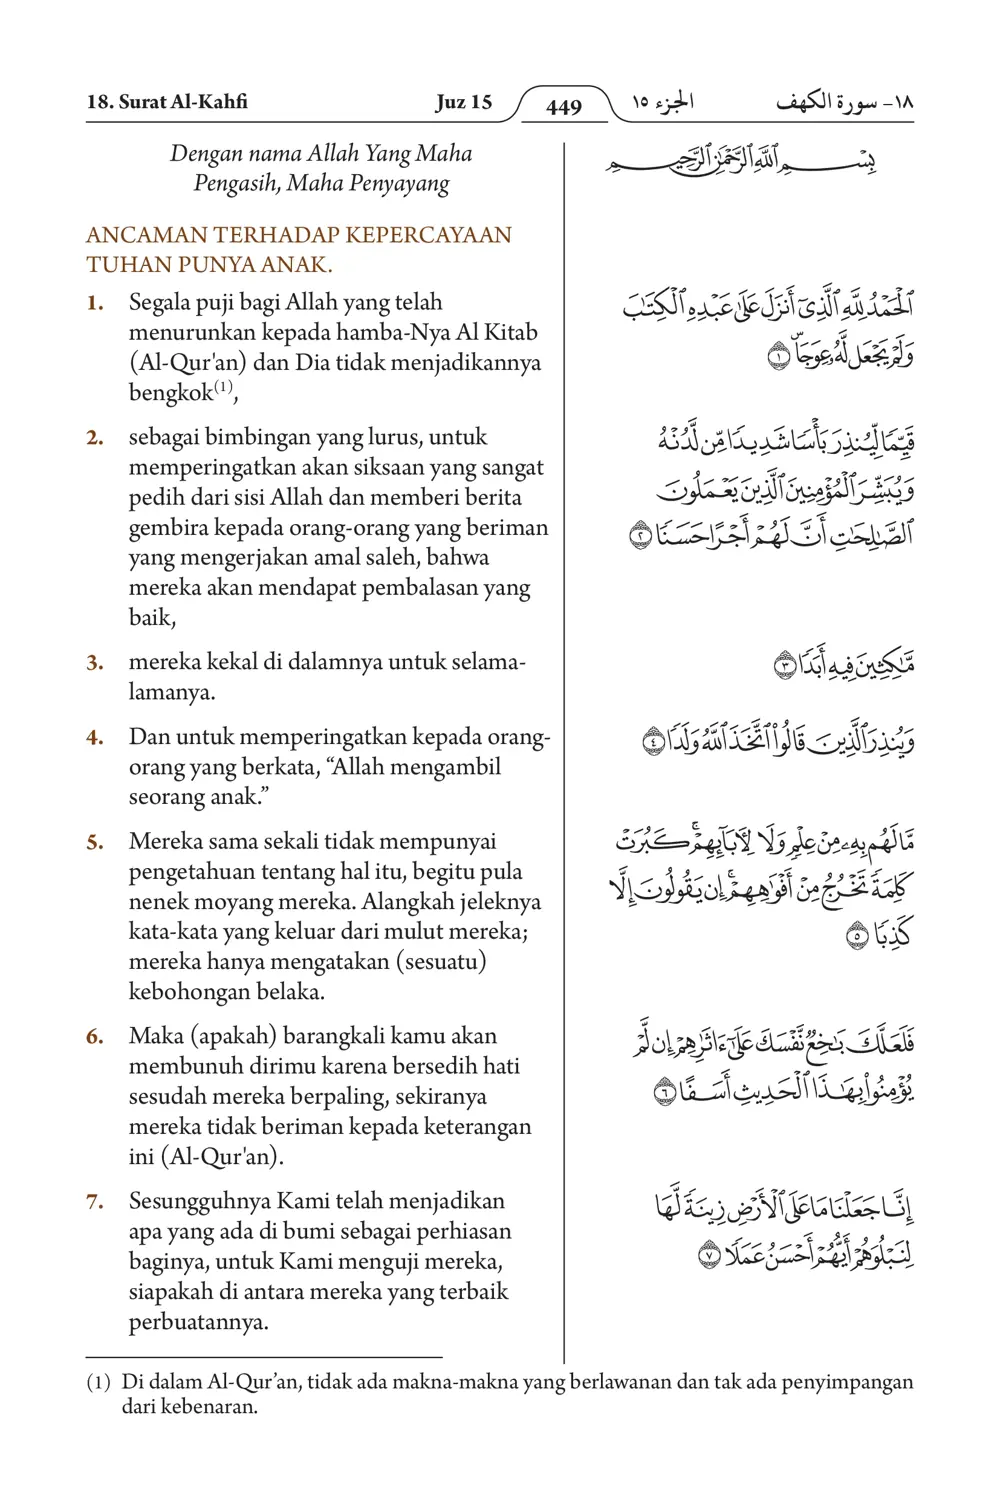 18. Surat Al-Kahfi Juz 15 449 الجزء ١٥ ١٨- سورة الكهف
Dengan nama Allah Yang Maha
Pengasih, Maha Penyayang
ANCAMAN TERHADAP KEPERCAYAAN
TUHAN PUNYA ANAK.
1. Segala puji bagi Allah yang telah
menurunkan kepada hamba-Nya Al Kitab
(Al-Qur'an) dan Dia tidak menjadikannya
bengkok(1),
2. sebagai bimbingan yang lurus, untuk
memperingatkan akan siksaan yang sangat
pedih dari sisi Allah dan memberi berita
gembira kepada orang-orang yang beriman
yang mengerjakan amal saleh, bahwa
mereka akan mendapat pembalasan yang
baik,
3. mereka kekal di dalamnya untuk selama-
lamanya.
4. Dan untuk memperingatkan kepada orang-
orang yang berkata, “Allah mengambil
seorang anak.”
5. Mereka sama sekali tidak mempunyai
pengetahuan tentang hal itu, begitu pula
nenek moyang mereka. Alangkah jeleknya
kata-kata yang keluar dari mulut mereka;
mereka hanya mengatakan (sesuatu)
kebohongan belaka.
6. Maka (apakah) barangkali kamu akan
membunuh dirimu karena bersedih hati
sesudah mereka berpaling, sekiranya
mereka tidak beriman kepada keterangan
ini (Al-Qur'an).
7. Sesungguhnya Kami telah menjadikan
apa yang ada di bumi sebagai perhiasan
baginya, untuk Kami menguji mereka,
siapakah di antara mereka yang terbaik
perbuatannya.
بِسْمِ ٱللَّهِ ٱلرَّحْمَٰنِ ٱلرَّحِيمِ
ٱلْحَمْدُ لِلَّهِ ٱلَّذِىٓ أَنزَلَ عَلَىٰ عَبْدِهِ ٱلْكِتَٰبَ
وَلَمْ يَجْعَل لَّهُۥ عِوَجَاۜ ١
قَيِّمًا لِّيُنذِرَ بَأْسًا شَدِيدًا مِّن لَّدُنْهُ
وَيُبَشِّرَ ٱلْمُؤْمِنِينَ ٱلَّذِينَ يَعْمَلُونَ
ٱلصَّٰلِحَٰتِ أَنَّ لَهُمْ أَجْرًا حَسَنًا ٢
مَّٰكِثِينَ فِيهِ أَبَدًا ٣
وَيُنذِرَ ٱلَّذِينَ قَالُوا۟ ٱتَّخَذَ ٱللَّهُ وَلَدًا ٤
مَّا لَهُم بِهِۦ مِنْ عِلْمٍ وَلَا لِءَابَآئِهِمْ ۚ كَبُرَتْ
كَلِمَةً تَخْرُجُ مِنْ أَفْوَٰهِهِمْ ۚ إِن يَقُولُونَ إِلَّا
كَذِبًا ٥
فَلَعَلَّكَ بَٰخِعٌ نَّفْسَكَ عَلَىٰٓ ءَاثَٰرِهِمْ إِن لَّمْ
يُؤْمِنُوا۟ بِهَٰذَا ٱلْحَدِيثِ أَسَفًا ٦
إِنَّا جَعَلْنَا مَا عَلَى ٱلْأَرْضِ زِينَةً لَّهَا
لِنَبْلُوَهُمْ أَيُّهُمْ أَحْسَنُ عَمَلًا ٧
(1) Di dalam Al-Qur’an, tidak ada makna-makna yang berlawanan dan tak ada penyimpangan
dari kebenaran.